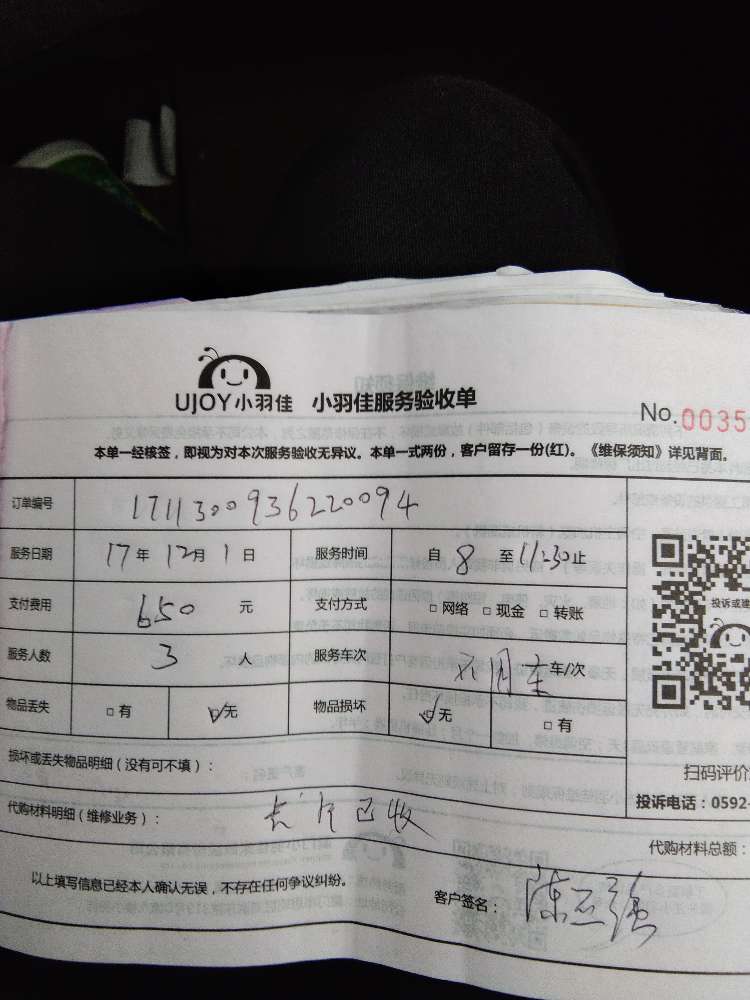 UJOY小羽佳 小羽佳服务验收单
No.0035
本单一经核签，即视为对本次服务验收无异议。本单一式两份，客户留存一份(红)。《维保须知》详见背面。
订单编号 1711300936220094
服务日期 17年12月1日 服务时间 自8至11:30止
支付费用 650元 支付方式 □网络 □现金 □转账
投诉或建
服务人数 3人 服务车次 不用车 车/次
物品丢失 □有 ☑无 物品损坏 ☑无 □有
损坏或丢失物品明细（没有可不填）：
扫码评价
代购材料明细（维修业务）： 已收
投诉电话：0592-
代购材料总额：
以上填写信息已经本人确认无误，不存在任何争议纠纷。
客户签名： 陈